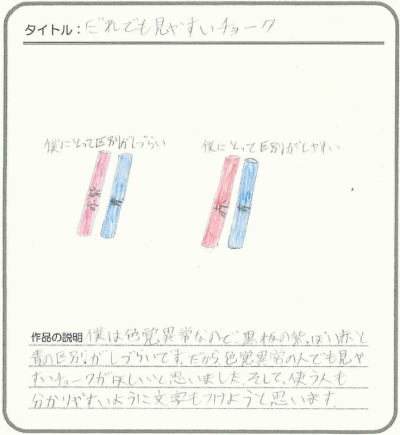 タイトル：だれでも見やすいチョーク
僕にとって区別がしづらい
僕にとって区別がしやすい
赤紫
青
赤
青
作品の説明 僕は色覚異常なので、黒板の紫っぽい赤と
青の区別がしづらいです。だから色覚異常の人でも見や
すいチョークがほしいと思いました。そして、使う人も
分かりやすいように文字もつけようと思います。